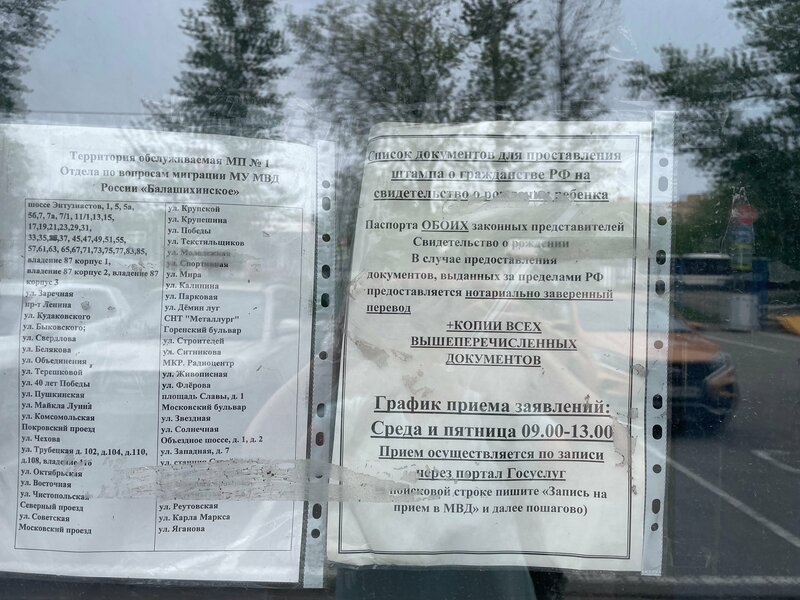 Территория обслуживаемая МП № 1
Отдела по вопросам миграции МУ МВД
России «Балашихинское»
шоссе Энтузиастов, 1, 5, 5а,
5б,7, 7а, 7/1, 11/1,13,15,
17,19,21,23,29,31,
33,35, 37, 45,47,49,51,55,
57,61,63, 65,67,71,73,75,77,83,85,
владение 87 корпус 1,
владение 87 корпус 2, владение 87
корпус 3
ул. Заречная
пр-т Ленина
ул. Кудаковского
ул. Быковского;
ул. Свердлова
ул. Белякова
ул. Объединения
ул. Терешковой
ул. 40 лет Победы
ул. Пушкинская
ул. Майкла Лунна
ул. Комсомольская
Покровский проезд
ул. Чехова
ул. Трубецкая д. 102, д.104, д.110,
д.108, владение
ул. Октябрьская
ул. Восточная
ул. Чистопольская
Северный проезд
ул. Советская
Московский проезд
ул. Крупской
ул. Крупешина
ул. Победы
ул. Текстильщиков
ул. Молодежная
ул. Спортивная
ул. Мира
ул. Калинина
ул. Парковая
ул. Дёмин луг
СНТ "Металлург"
Горенский бульвар
ул. Строителей
ул. Ситникова
МКР. Радиоцентр
ул. Живописная
ул. Флёрова
площадь Славы, д. 1
Московский бульвар
ул. Звездная
ул. Солнечная
Объездное шоссе, д. 1, д. 2
ул. Западная, д. 7
ул. станция
ул. Реутовская
ул. Карла Маркса
ул. Яганова
Список документов для проставления
штампа о гражданстве РФ на
свидетельство о рождении ребенка
Паспорта ОБОИХ законных представителей
Свидетельство о рождении
В случае предоставления
документов, выданных за пределами РФ
предоставляется нотариально заверенный
перевод
+КОПИИ ВСЕХ
ВЫШЕПЕРЕЧИСЛЕННЫХ
ДОКУМЕНТОВ
График приема заявлений:
Среда и пятница 09.00-13.00
Прием осуществляется по записи
через портал Госуслуг
поисковой строке пишите «Запись на
прием в МВД» и далее пошагово)